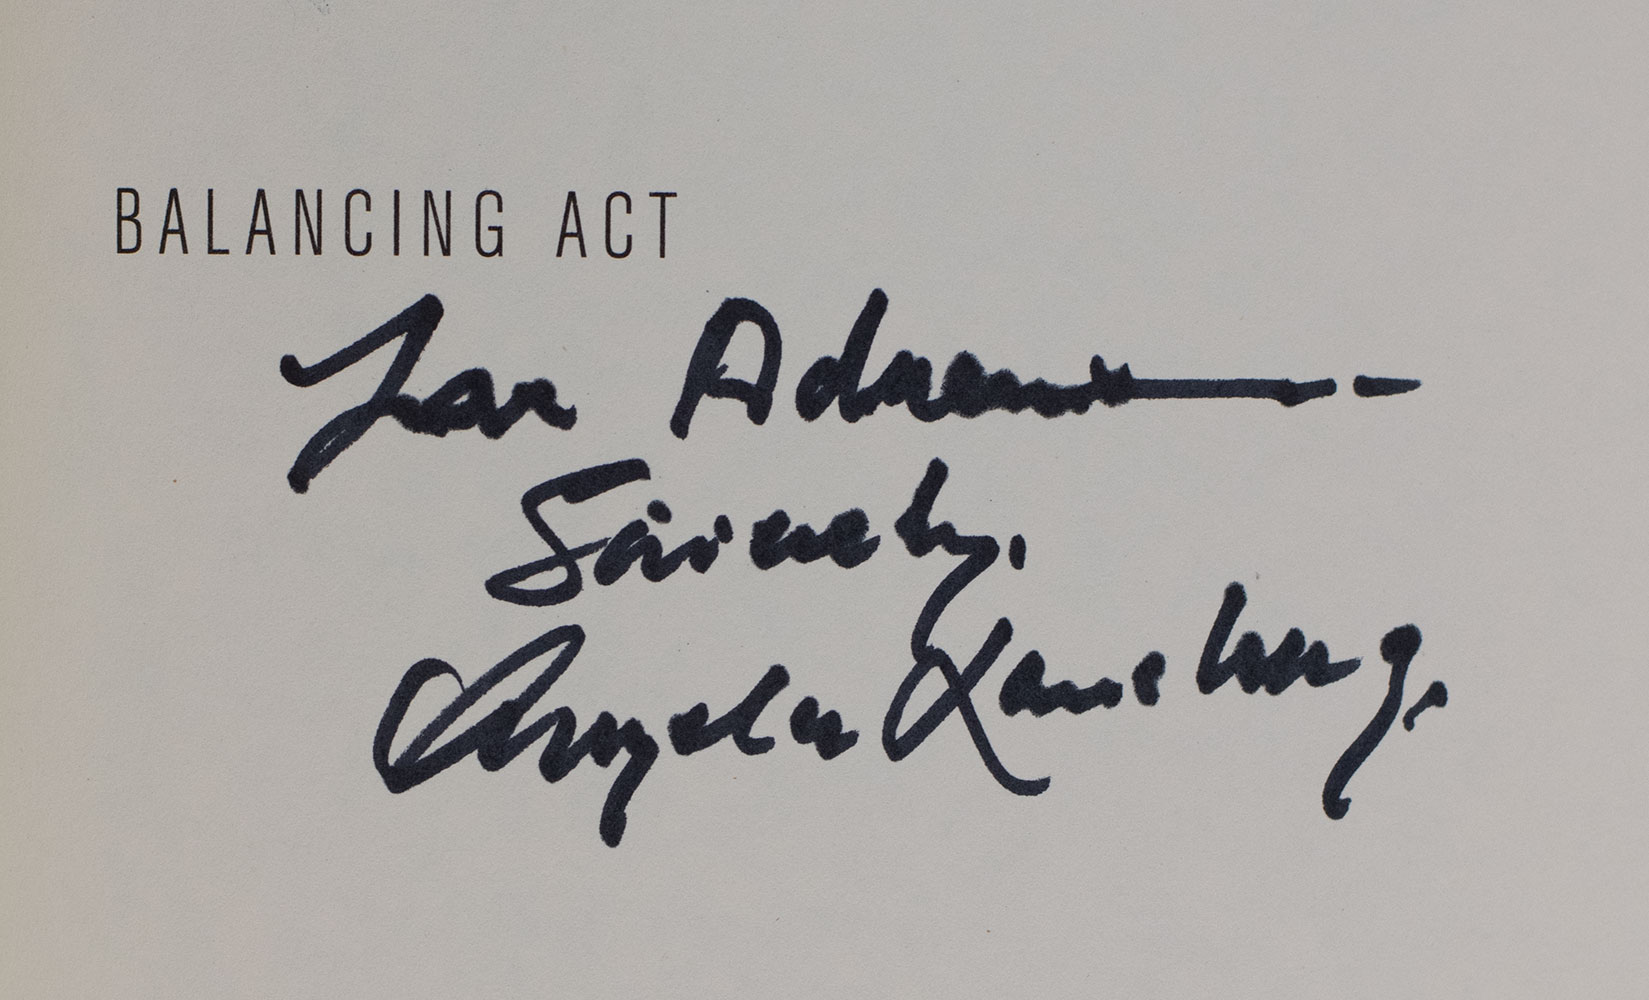 BALANCING ACT
For Adrienne —-
Sincerely,
Angela Lansbury.